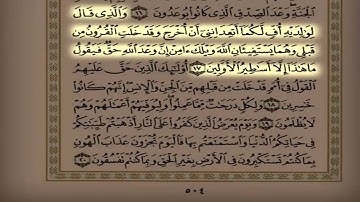 الْجَنَّةِ وَعْدَ الصِّدْقِ الَّذِي كَانُوا يُوعَدُونَ ١٦ وَالَّذِي قَالَ
لِوَالِدَيْهِ أُفٍّ لَّكُمَا أَتَعِدَانِنِي أَنْ أُخْرَجَ وَقَدْ خَلَتِ الْقُرُونُ مِن
قَبْلِي وَهُمَا يَسْتَغِيثَانِ اللَّهَ وَيْلَكَ ءَامِنْ إِنَّ وَعْدَ اللَّهِ حَقٌّ فَيَقُولُ
مَا هَٰذَا إِلَّا أَسَاطِيرُ الْأَوَّلِينَ ١٧ أُولَٰئِكَ الَّذِينَ حَقَّ عَلَيْهِمُ
الْقَوْلُ فِي أُمَمٍ قَدْ خَلَتْ مِن قَبْلِهِم مِّنَ الْجِنِّ وَالْإِنسِ إِنَّهُمْ كَانُوا
خَاسِرِينَ ١٨ وَلِكُلٍّ دَرَجَاتٌ مِّمَّا عَمِلُوا وَلِيُوَفِّيَهُمْ أَعْمَالَهُمْ وَهُمْ
لَا يُظْلَمُونَ ١٩ وَيَوْمَ يُعْرَضُ الَّذِينَ كَفَرُوا عَلَى النَّارِ أَذْهَبْتُمْ طَيِّبَاتِكُمْ
فِي حَيَاتِكُمُ الدُّنْيَا وَاسْتَمْتَعْتُم بِهَا فَالْيَوْمَ تُجْزَوْنَ عَذَابَ الْهُونِ
بِمَا كُنتُمْ تَسْتَكْبِرُونَ فِي الْأَرْضِ بِغَيْرِ الْحَقِّ وَبِمَا كُنتُمْ تَفْسُقُونَ ٢٠
٥٠٤